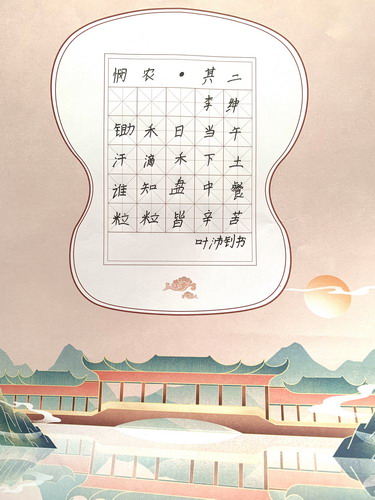 悯农·其二
李绅
锄禾日当午
汗滴禾下土
谁知盘中餐
粒粒皆辛苦
叶钊书